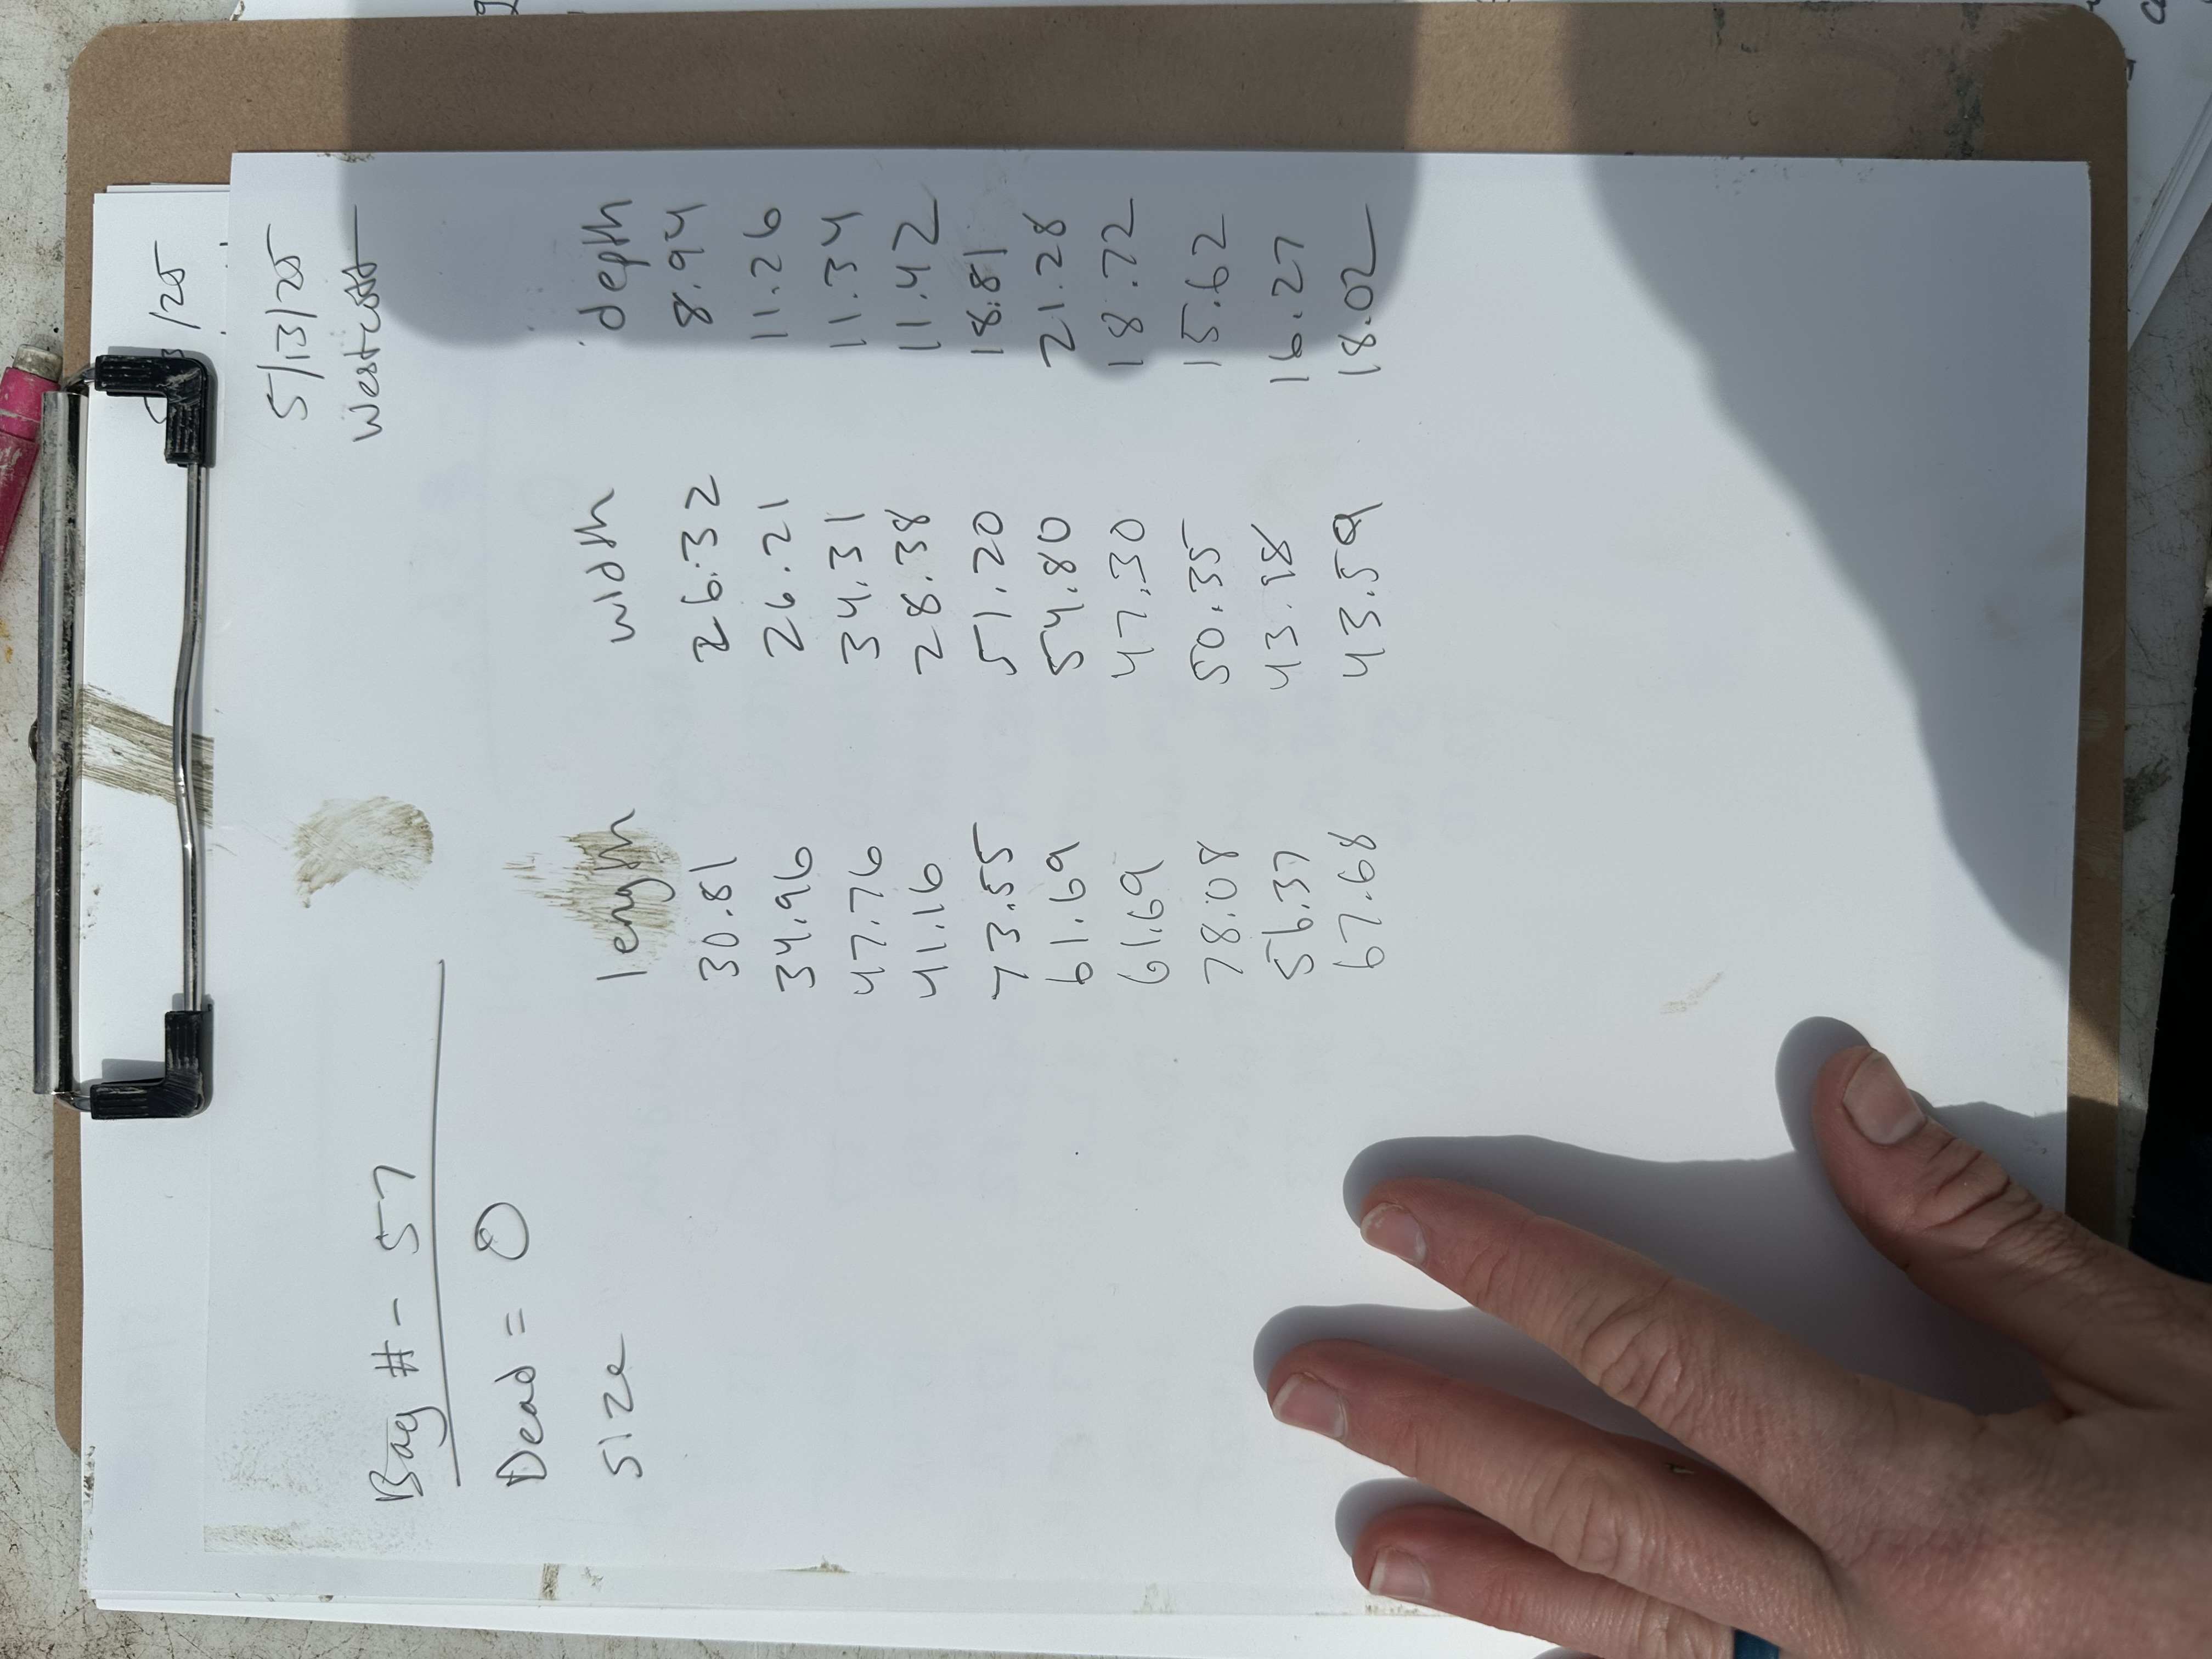 /25
5/13/25
Westcott
Bag # - 57
Dead = 0
size length width depth
30.81 26.32 8.94
34.96 26.21 11.26
47.76 34.31 11.34
41.16 28.38 11.42
73.55 51.20 18.81
61.69 54.80 21.28
61.69 47.30 18.72
78.08 50.35 15.62
56.37 43.98 16.27
67.68 43.59 18.02